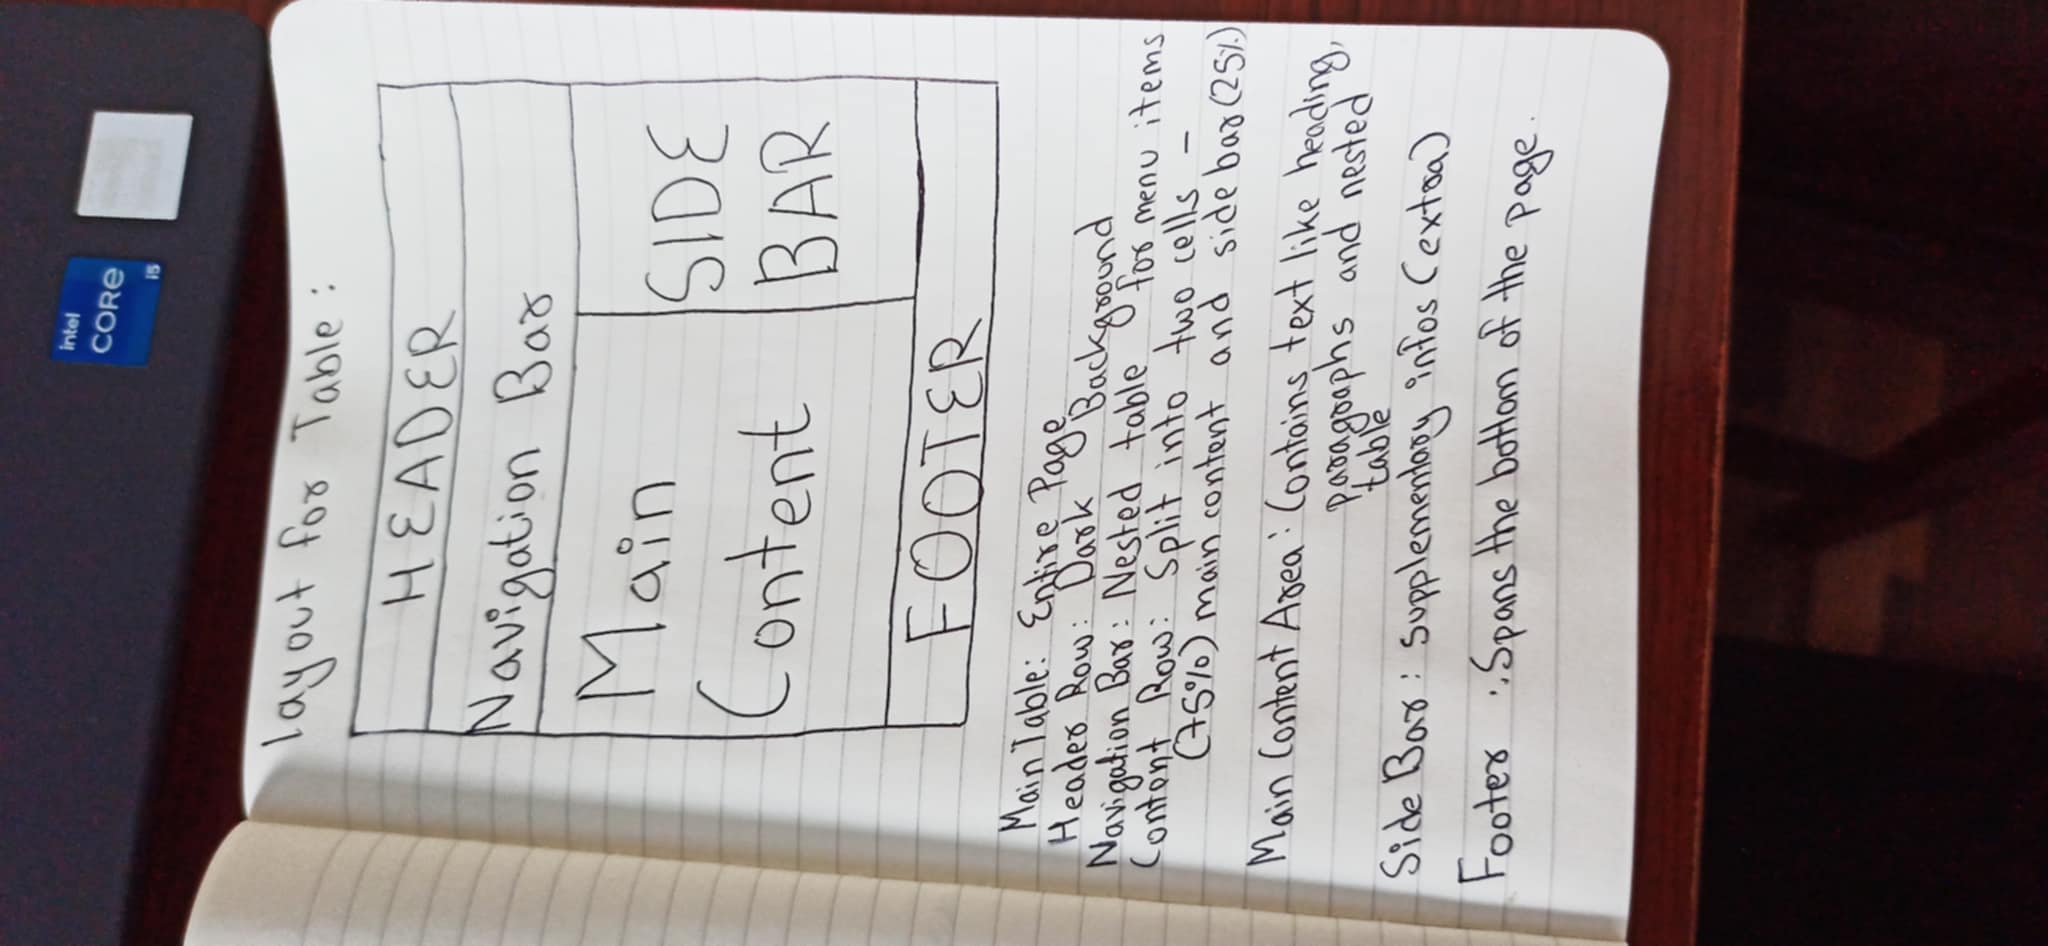 intel
CORe
i5
Layout for Table :
HEADER
Navigation Bar
Main
Content
SIDE
BAR
FOOTER
Main Table: Entire Page
Header Row: Dark Background
Navigation Bar: Nested table for menu items
Content Row: Split into two cells –
(75%) main content and side bar (25%)
Main Content Area: Contains text like heading,
paragraphs and nested
table
Side Bar : supplementary infos (extra)
Footer :. Spans the bottom of the page.